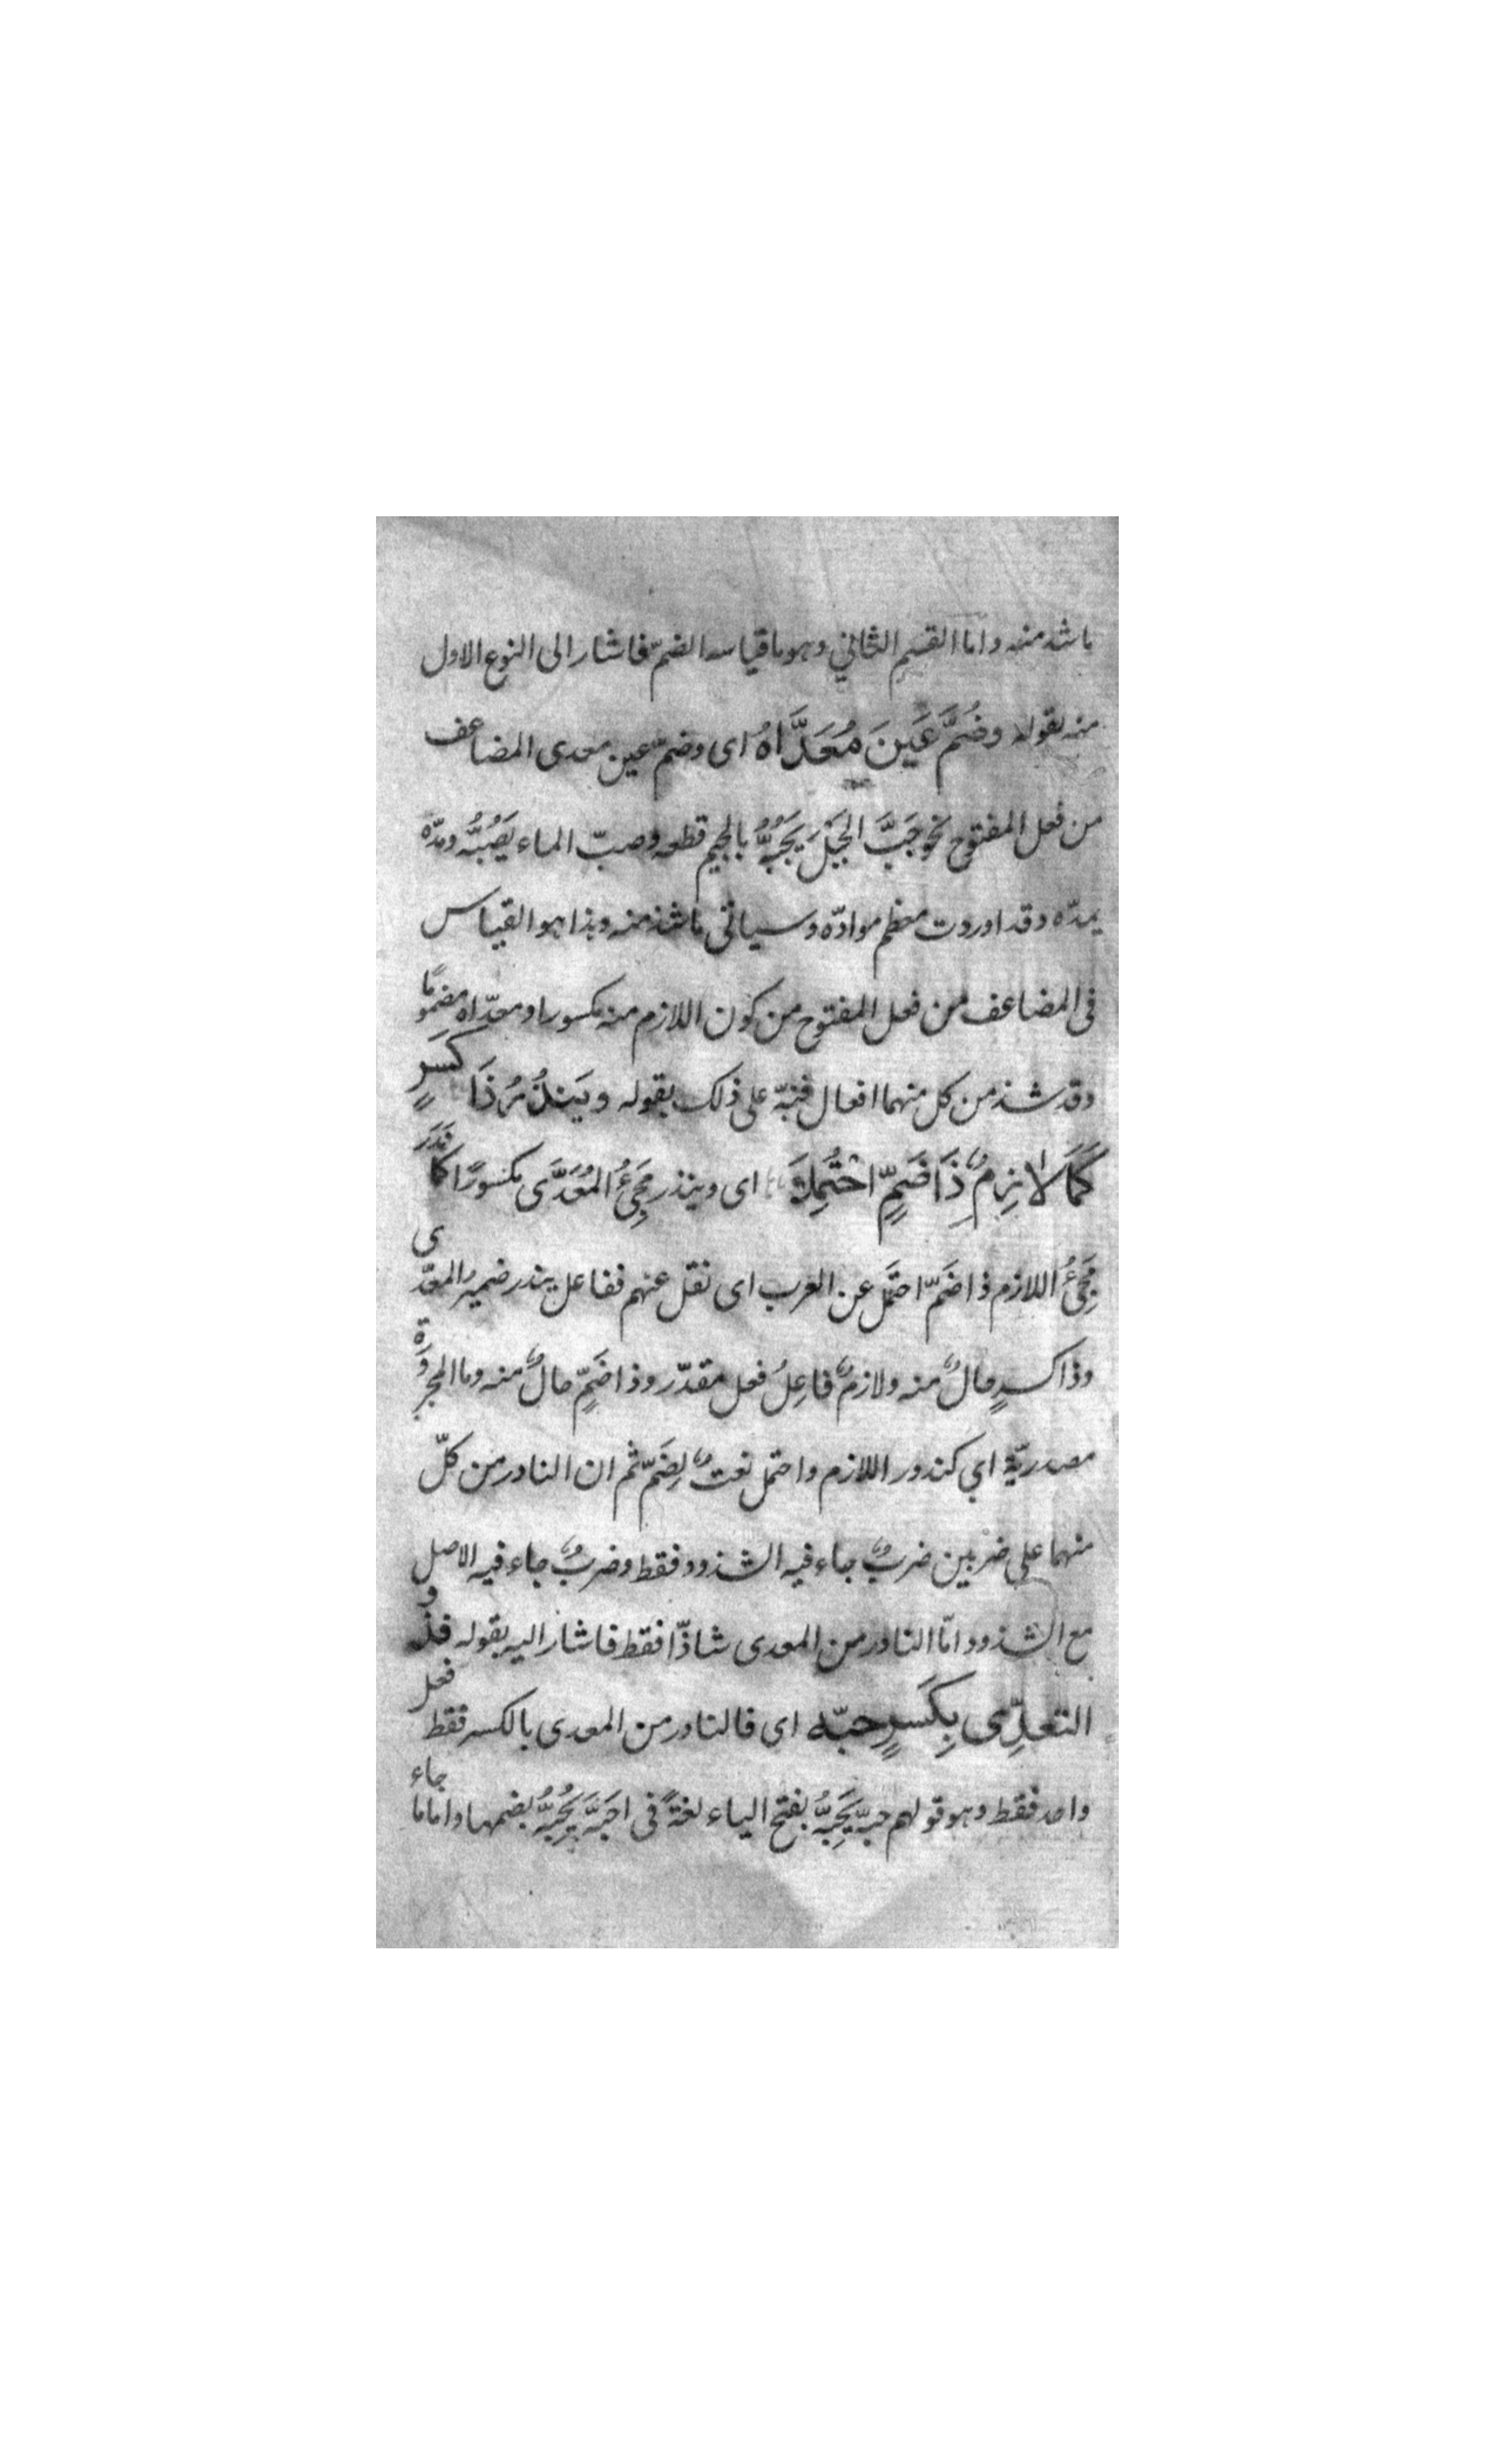 ما شذ منه واما القسم الثاني وهو ما قياسه الضمّ فاشار الى النوع الاول
منه بقوله وضُمَّ عَينَ مُعَدَّاهُ اى وضمّ عين معدى المضاعف
من فعل المفتوح نحو جَبَّ الجَبَلَ يَجُبُّهُ بالجيم قطعه وصبّ الماء يَصُبُّه ومدّه
يمدّه وقد اوردت معظم موادّه وسياتى ما شذ منه وهذا هو القياس
فى المضاعف من فعل المفتوح من كون اللازم منه مكسورا ومعدّاه مضمومًا
وقد شذ من كل منهما افعال فنبّه على ذلك بقوله ويَندُرُ ذَا كَسرٍ
كَمَا لازِمٌ ذَا ضَمٍّ احْتُمِلَا اى ويندر مَجِىُٔ المُعَدَّى مكسورًا كما نَدَرَ
مَجِىُٔ اللازم ذا ضَمّ احتَمَل عن العرب اى نقل عنهم ففاعل يندر ضميرُ المعدّى
وذا كسرٍ حالٌ منه ولازمٌ فاعِلُ فعل مقدّر وذا ضَمٍّ حالٌ منه وما المجرورة
مصدريّة اي كندور اللازم واحتمل نعتٌ لِضَمّ ثم ان النادر من كلّ
منهما على ضربين ضربٌ جاء فيه الشذوذ فقط وضربٌ جاء فيه الاصل
مع الشذوذ امّا النادر من المعدى شاذّا فقط فاشار اليه بقوله فذو
التعدِّى بِكَسرٍ حبّه اى فالنادر من المعدى بالكسر فقط فعل
واحد فقط وهو قولهم حبّه يَحِبُّهُ بفتح الياء لغةً فى احَبَّهَ يُحِبُّهُ بضمها واما ما جاء